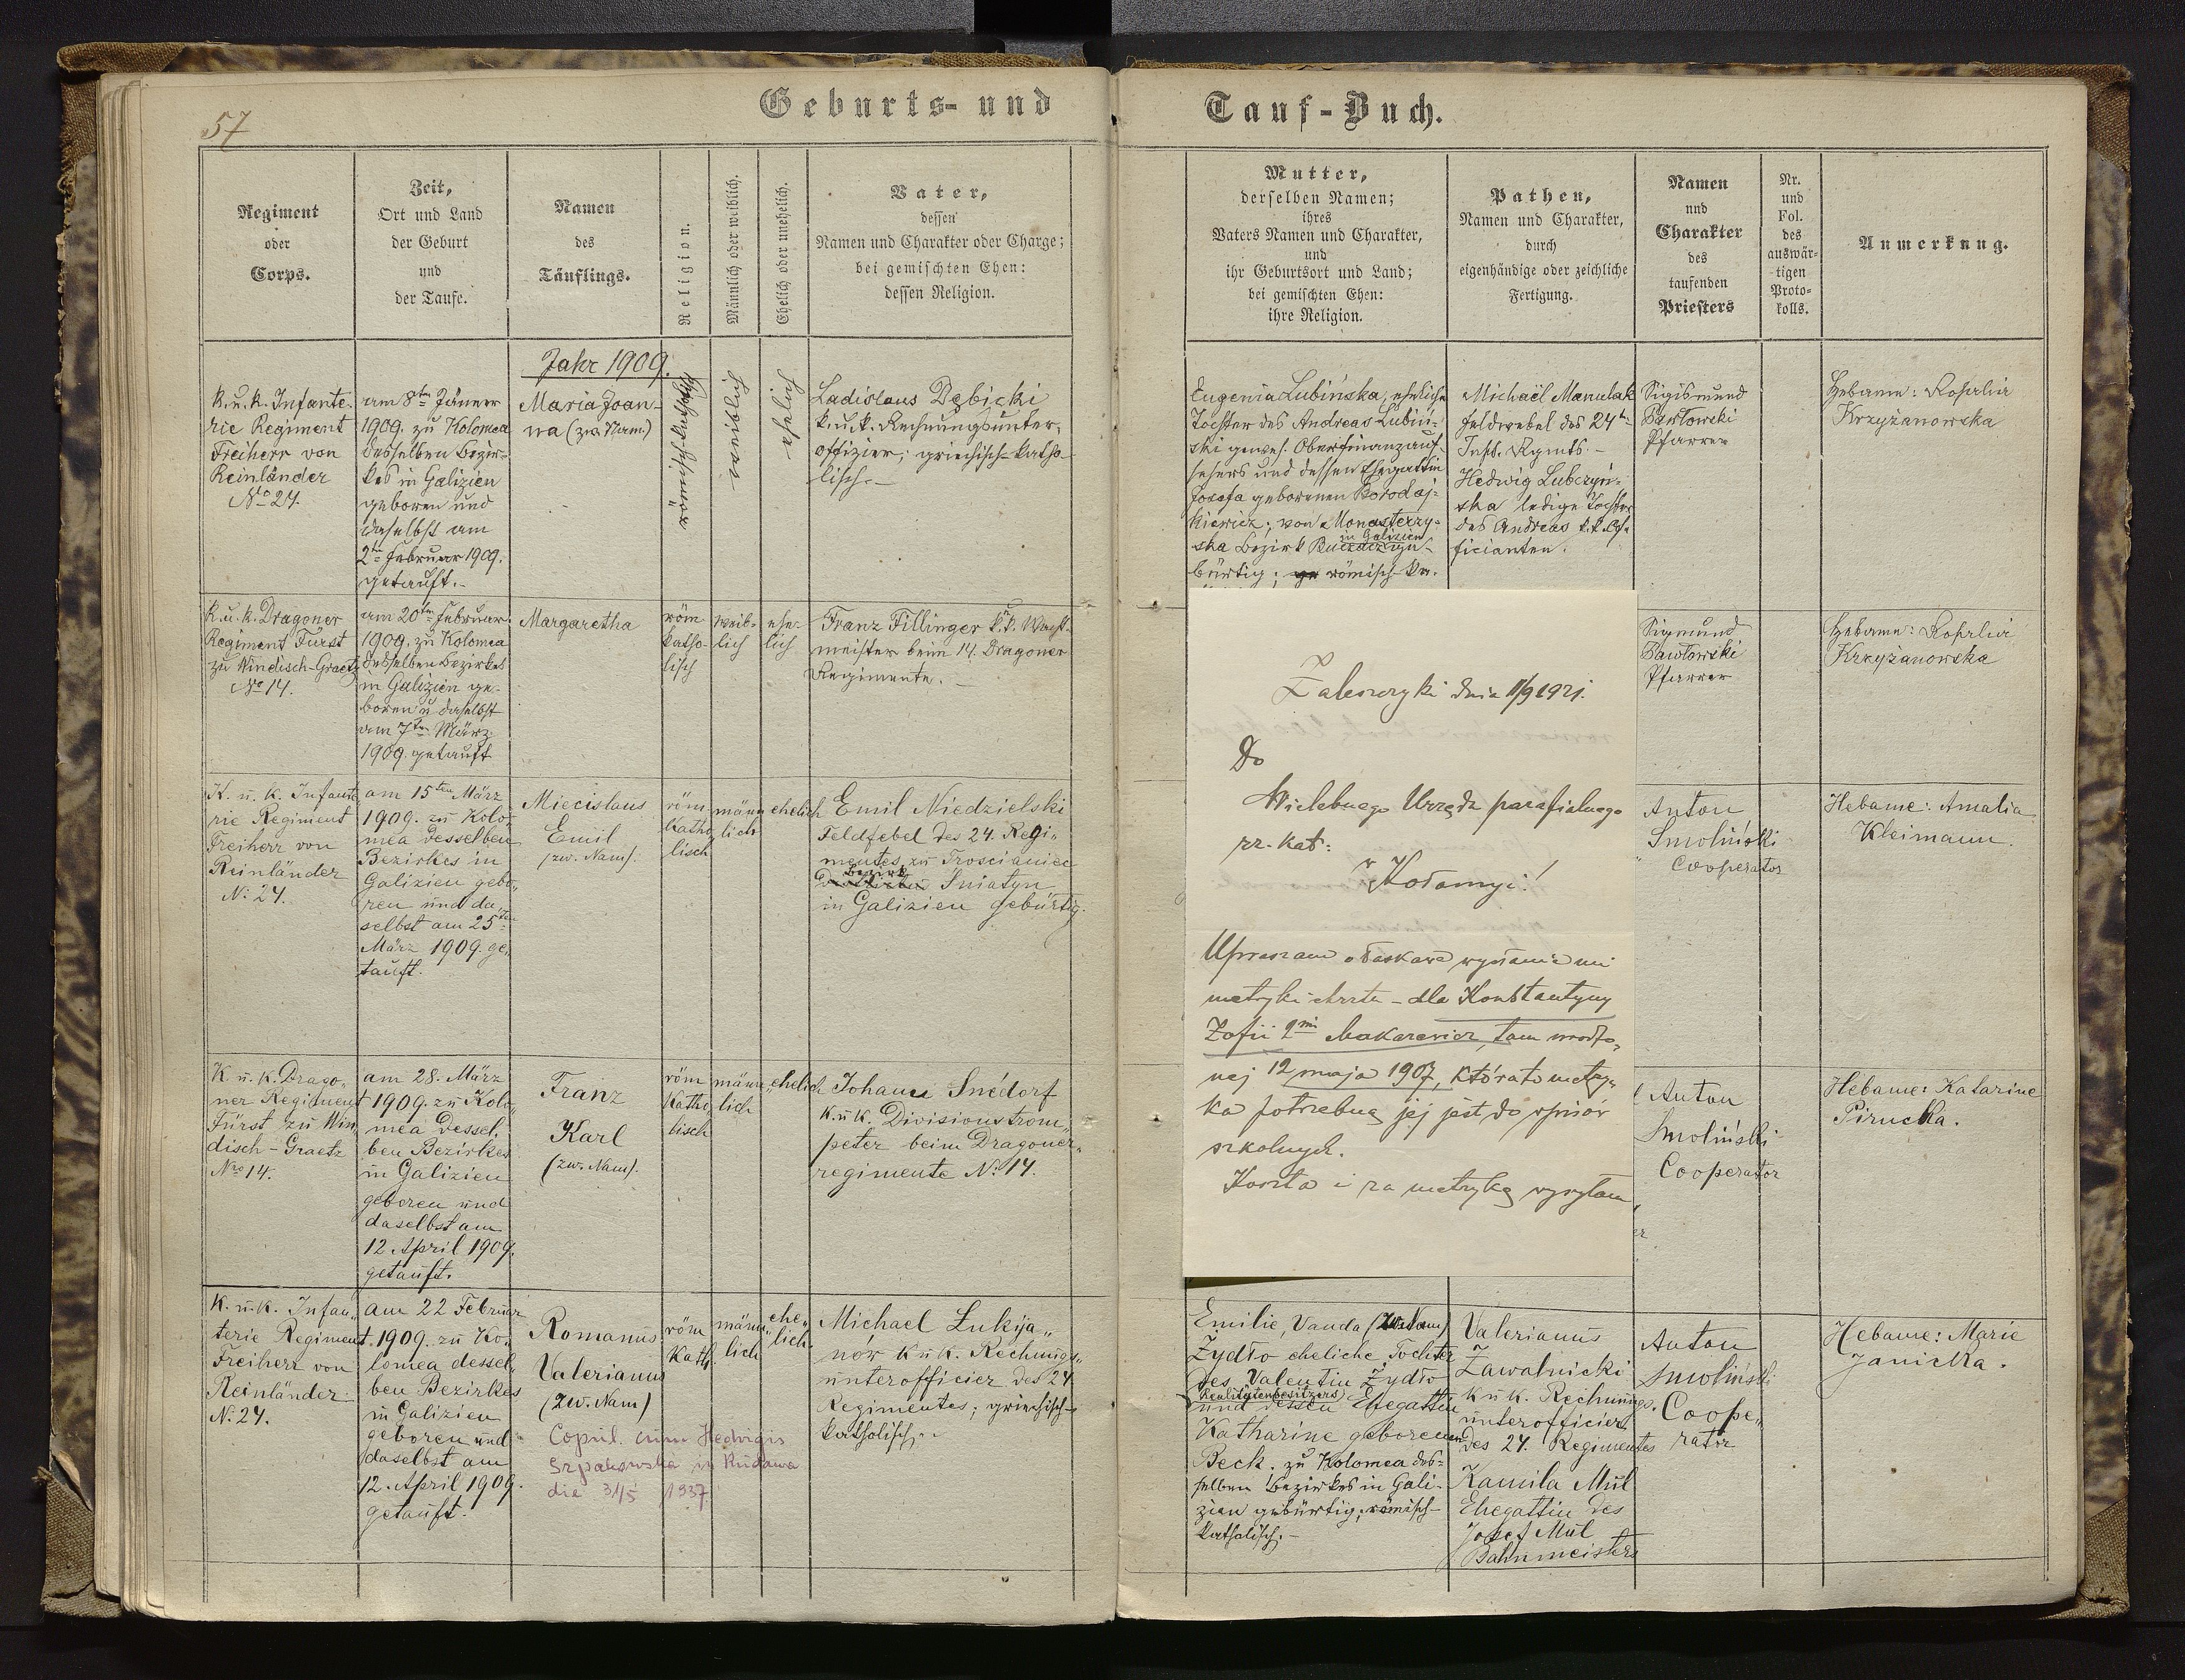 57
Geburts- und
Tauf-Buch.
Regiment
oder
Corps.
Zeit,
Ort und Land
der Geburt
und
der Taufe.
Namen
des
Täuflings.
Religion.
Männlich oder weiblich.
Ehelich oder unehelich.
Vater,
dessen
Namen und Charakter oder Charge;
bei gemischten Ehen:
dessen Religion.
Mutter,
derselben Namen;
ihres
Vaters Namen und Charakter,
und
ihr Geburtsort und Land;
bei gemischten Ehen:
ihre Religion.
Pathen,
Namen und Charakter,
durch
eigenhändige oder zeichliche
Fertigung.
Namen
und
Charakter
des
taufenden
Priesters
Nr.
und
Fol.
des
auswär-
tigen
Proto-
kolls.
Anmerkung.
Jahr 1909.
K. u. k. Infante-
rie Regiment
Freiherr von
Reinländer
No 24.
am 8ten Jänner
1909. zu Kolomea
desselben Bezir-
kes in Galizien
geboren und
daselbst am
2ten Februar 1909.
getauft.-
Maria Joan-
na (zw. Nam.)
römisch-katholisch
weiblich
ehelich
Ladislaus Dębicki
k. u. k. Rechnungsunter-
offizier; griechisch-katho-
lisch.-
Eugenia Lubińska, eheliche
Tochter des Andreas Lubiń-
ski gewes. Oberfinanzauf-
sehers und dessen Ehegattin
Josefa geborenen Borodaj-
kiewicz; von Monasterzy-
in Galizien
ska Bezirk Buczacz ge-
bürtig; römisch-ka-
Michaël Manulak
Feldwebel des 24ten
Inft. Rgmts.-
Hedwig Lubczyń-
ska ledige Tochter
des Andreas
ficianten.
Sigismund
Pawłowski
Pfarrer
Hebamme: Rosalia
Krzyżanowska
K. u. k. Dragoner
Regiment Fürst
zu Windisch-Graetz
No 14.
am 20ten Februar
1909. zu Kolomea
desselben Bezirkes
in Galizien ge-
boren u. daselbst
am 7ten März
1909. getauft
Margaretha
röm
katho-
lisch
weib-
lich
ehe-
lich
Franz Fillinger k.k. Wacht-
meister beim 14. Dragoner
Regimente.-
Sigmund
Pawłowski
Pfarrer
Hebamme: Rosalia
Krzyżanowska
K. u. K. Infante
rie Regiment
Freiherr von
Reinländer
N: 24.
am 15ten März
1909. zu Kolo-
mea desselben
Bezirkes in
Galizien gebo-
ren und da-
selbst am 25ten
März 1909. ge-
tauft.
Miecislaus
Emil
(zw. Nam).
röm
Katho
lisch
männ
lich
ehelich
Emil Niedzielski
Feldfebel des 24. Regi-
mentes, zu Troscianiec
Bezirk
Sniatyn
in Galizien gebürtig.
Anton
Smoliński
Cooperator
Hebame: Amalia
Kleimann.
K. u. K. Drago-
ner Regiment
Fürst zu Win-
disch-Graetz
Nro 14.
am 28. März
1909. zu Kolo-
mea dessel-
ben Bezirkes
in Galizien
geboren und
daselbst am
12. April 1909.
getauft.
Franz
Karl
(zw. Nam).
röm
Katho
lisch
männ
lich
ehelich
Johann Snédorf
K. u K. Divisionstrom-
peter beim Dragoner-
regimente N: 14.
Anton
Smoliński
Cooperator
Hebame: Katarine
Pirucka.
K. u. K. Infan-
terie Regiment
Freiherr von
Reinländer
N: 24.
am 22 Februar
1909. zu Ko-
lomea dessel-
ben Bezirkes
in Galizien
geboren und
daselbst am
12. April 1909.
getauft.
Romanus
Valerianus
(zw. Nam)
Copul. cum Hedvigis
Szpakowska in Rudawa
die 31/5 1937
röm
Kath.
männ
lich
ehe-
lich.
Michael Łukija-
nów K u K. Rechnungs-
unterofficier des 24
Regimentes; griechisch-
katholisch.-
Emilie, Vanda (zw Nam)
Żydło eheliche Tochter
des Valentin Żydło
Realitätenbesitzers
und dessen Ehegattin
Katharine geborenen
Beck. zu Kolomea des-
selben Bezirkes in Gali-
zien gebürtig; römisch-
katholisch.-
Valerianus
Zawalnicki
K u K. Rechnungs-
unterofficier
des 24. Regimentes
Kamila Mul
Ehegattin des
Josef Mul
Bahnmeisters
Anton
Smoliński
Coope-
rator
Hebame: Marie
Janicka.
Zaleszczyki dnia 11/9 1921.
Do
Wielebnego Urzędu parafialnego
rz. kat:
w Kołomyi!
Upraszam o łaskawe wysłanie mi
metryki chrztu - dla Konstantyny
Zofii 2mi Makarewicz, tam urodzo-
nej 12 maja 1907, którato metry-
ka potrzebną jej jest do wpisów
szkolnych.
Koszta i za metrykę wysyłam